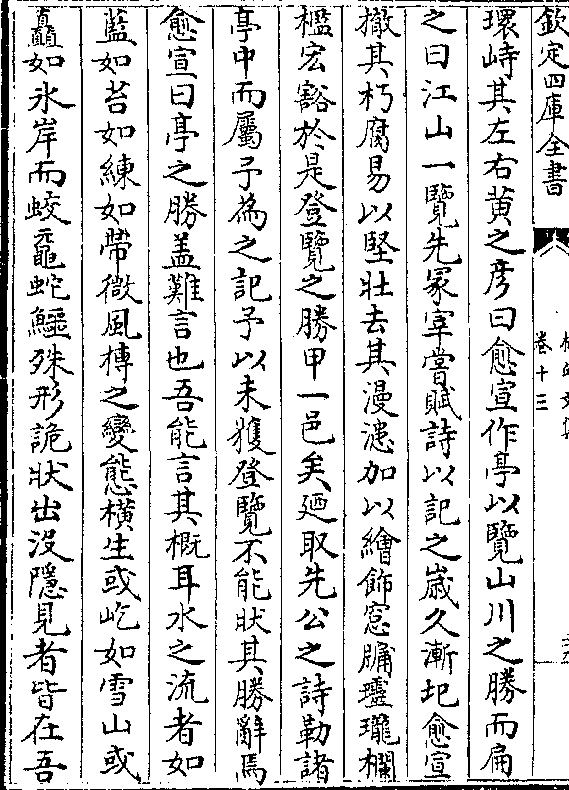 欽定四庫全書
卷十三
環峙其左右黄之彦曰愈宣作亭以覽山川之勝而扁
之曰江山一覽先冡宰嘗賦詩以記之嵗久漸圯愈宣
撤其朽腐易以堅壯去其漫漶加以繪飾窓牖瓏欄
檻宏豁於是登覽之勝甲一邑矣廼取先公之詩勒諸
亭中而屬予為之記予以未獲登覽不能狀其勝辭焉
愈宣曰亭之勝盖難言也吾能言其概耳水之流者如
藍如苔如練如帶微風摶之變態横生或屹如雪山或
矗如氷岸而蛟黿蛇鱷殊形詭狀出沒隱見者皆在吾